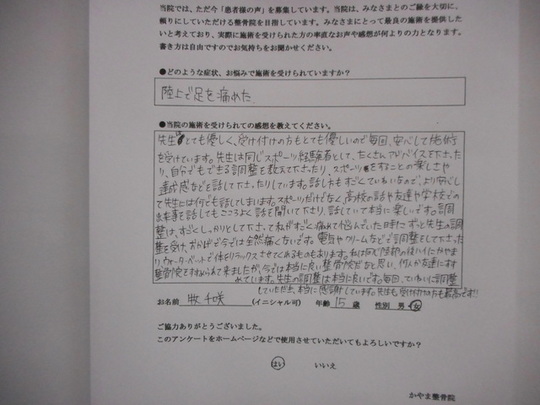 当院では、ただ今「患者様の声」を募集しています。当院は、みなさまとのご縁を大切に、
頼りにしていただける整骨院を目指しています。みなさまにとって最良の施術を提供した
いと考えており、実際に施術を受けられた方の率直なお声や感想が何よりの力となります。
書き方は自由ですのでお気持ちをお聞かせください。
●どのような症状、お悩みで施術を受けられていますか？
陸上で足を痛めた
●当院の施術を受けられての感想を教えてください。
先生もとても優しく、受け付けの方もとても優しいので毎回、安心して施術
を受けています。先生は同じスポーツ経験者として、たくさんアドバイスを下さった
り、自分でもできる調整を教えて下さったり、スポーツをすることの楽しさや
達成感などを話して下さったりしています。話し方もすごくていねいなので、より安心し
て先生には何でも話してしまいます。スポーツだけでなく、高校の話や友達や学校での
出来事を話してもこころよく話を聞いて下さり、話していて本当に楽しいです。調
整は、すごくしっかりとして下さって私がすごく痛めて悩んでいた日時に ずっと先生の調
整を受け、おかげで今では全然痛くないです。電気やクリームなどで調整をして下さった
りウォーターベッドで体をリラックスさせてくれるものもあります。
整骨院とすすめられて来ましたが、今では本当に良い整骨院だなと思い、何人か友達にすす
めています。先生の調整は本当に良いです。毎回、ていねいに調整
していただき、本当に感謝しています。先生も受け付けの方も最高です!!
お名前 千咲 (イニシャル可) 年齢 15 歳 性別 男 女
ご協力ありがとうございました。
このアンケートをホームページなどで使用させていただいてもよろしいですか？
はい いいえ
かやま整骨院